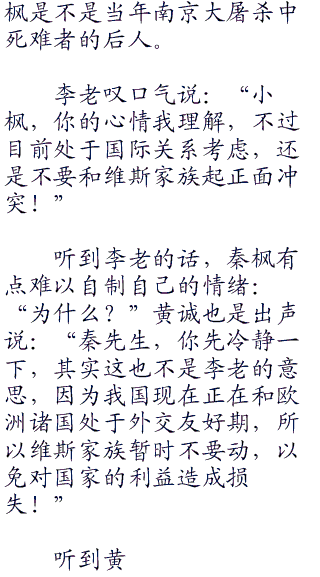 枫是不是当年南京大屠杀中
死难者的后人。
李老叹口气说：“小
枫，你的心情我理解，不过
目前处于国际关系考虑，还
是不要和维斯家族起正面冲
突！”
听到李老的话，秦枫有
点难以自制自己的情绪：
“为什么？”黄诚也是出声
说：“秦先生，你先冷静一
下，其实这也不是李老的意
思，因为我国现在正在和欧
洲诸国处于外交友好期，所
以维斯家族暂时不要动，以
免对国家的利益造成损
失！”
听到黄